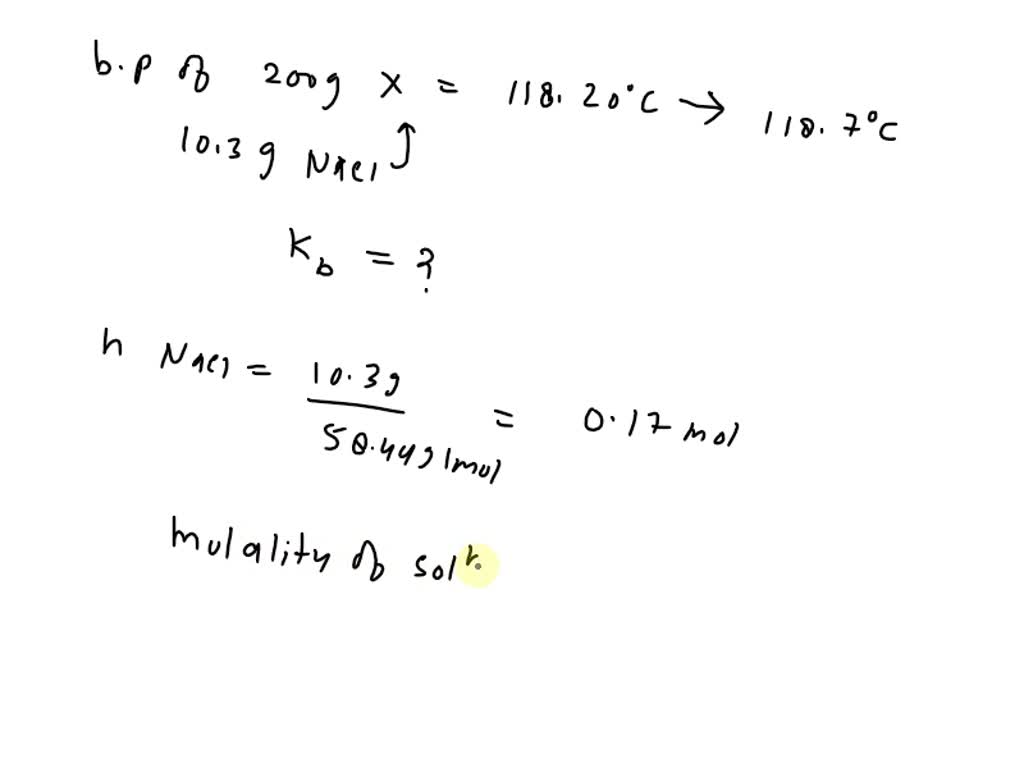 b.p of 200g X = 118.20°C → 118.7°C
10.3g NaCl
Kb = ?
n NaCl = 10.3g / 58.44g/mol = 0.17 mol
molality of soln